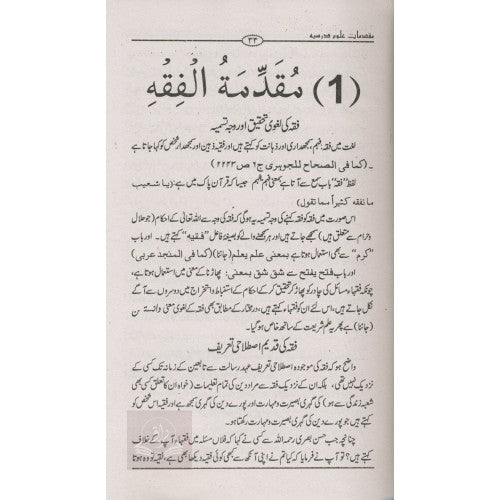 مقدمات علوم درسیہ
۳۳
(1) مُقَدِّمَةُ الْفِقْهِ
فقہ کی لغوی تحقیق اور وجہ تسمیہ
لغت میں فقہ، فہم، سمجھداری اور ذہانت کو کہتے ہیں اور فقہ ذہین اور سمجھدار شخص کو کہا جاتا ہے
۔(کما فی الصحاح للجوہری ج۶ ص۲۲۴۳)
لفظ "فقہ" باب سمع سے آتا ہے بمعنی فہم یفہم جیسا کہ قرآن پاک میں ہے (یا شعیب
ما نفقہ کثیراً مما تقول)
اس صورت میں فقہ کو فقہ کہنے کی وجہ تسمیہ یہ ہوگی کہ فقہ کی وجہ سے اللہ تعالیٰ کے احکام (جو حلال
وحرام سے متعلق ہیں) سمجھے جاتے ہیں اور ہر سمجھنے والے کو بصیغۂ فاعل "فقیہ" کہتے ہیں۔ اور باب
"کرم" سے بھی استعمال ہوتا ہے بمعنی علم یعلم (جاننا) (کما فی المنجد عربی)
اور باب فتح یفتح سے شق شق بمعنی: پھاڑنا کے معنی میں استعمال ہوتا ہے،
چونکہ فقہاء مسائل کی چادر کو پھاڑ کر تحقیق کر کے احکام کے استنباط واستخراج میں دوسروں سے آگے
نکل جاتے ہیں، اس لئے ان کو فقہاء کہتے ہیں، در مختار کے مطابق بھی فقہ کے لغوی معنی دانستن
(جاننا) ہے پھر یہ علم شریعت کے ساتھ خاص ہو گیا۔
فقہ کی قدیم اصطلاحی تعریف
واضح ہو کہ فقہ کی موجودہ اصطلاحی تعریف عہد رسالت سے تابعین کے زمانہ تک کسی کے
نزدیک نہیں تھی، بلکہ ان کے نزدیک فقہ سے مراد دین کی تمام تعلیمات (خواہ ان کا تعلق کسی بھی
شعبہ زندگی سے ہو) کی گہری بصیرت ومہارت اور پورے دین کی گہری سمجھ ہے اور فقیہ اس شخص کو
کہتے ہیں جو پورے دین کی گہری بصیرت ومہارت رکھتا ہو۔
چنانچہ جب حسن بصری رحمہ اللہ سے کسی نے کہا کہ فلاں مسئلہ میں فقہاء آپ کے خلاف
کہتے ہیں؟ تو آپ نے فرمایا کہ کیا تم نے اپنی آنکھ سے کبھی کوئی فقیہ دیکھا بھی ہے، فقیہ تو وہ ہوتا